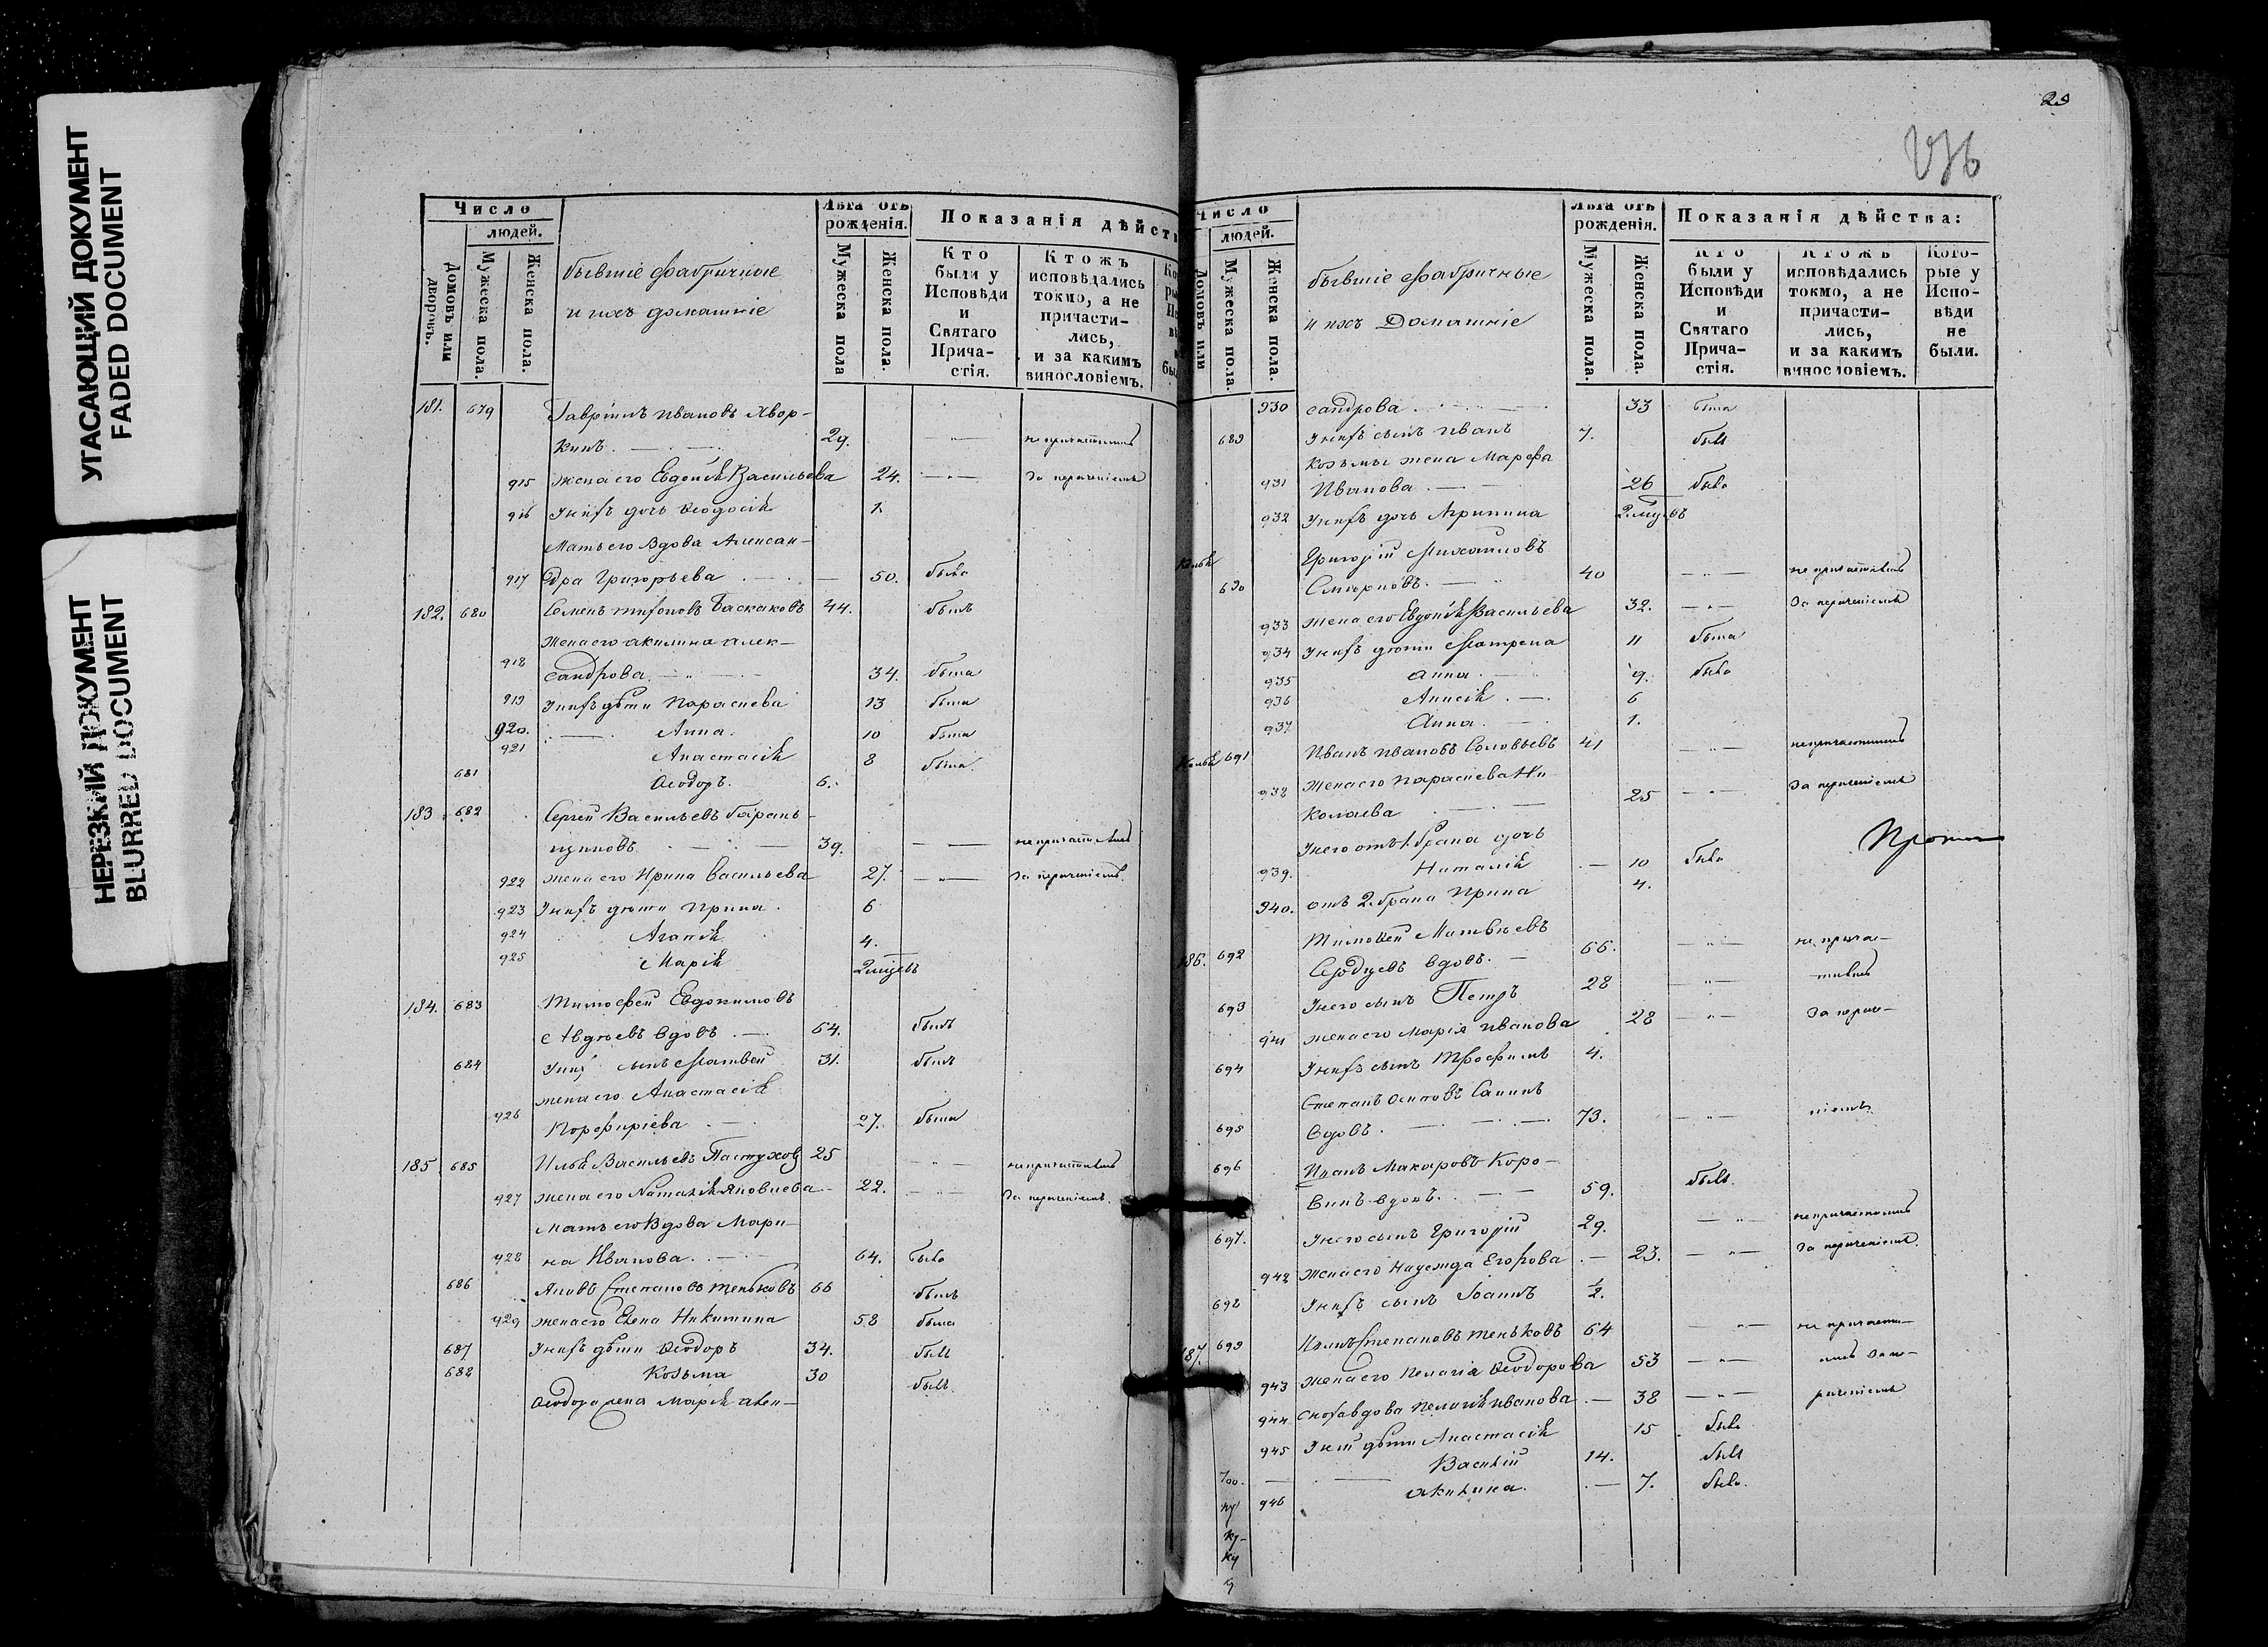 УГАСАЮЩИЙ ДОКУМЕНТ
FADED DOCUMENT
НЕРЕЗКИЙ ДОКУМЕНТ
BLURRED DOCUMENT
Число
людей.
Домовъ или дворовъ.
Мужеска пола.
Женска пола.
бывшіе фабричные
и ихъ домашніе
Лѣта отъ рожденія.
Мужеска пола
Женска пола.
Показанія дѣйст
Кто были у Исповѣди и Святаго Прича-
стія.
Ктожъ исповѣдались токмо, а не причасти-
лись, и за какимъ винословіемъ.
181. 679 Гавріилъ Ивановъ Хвор-
кинъ 29. не причастились
915 жена его Евдокія Васильева 24. За нерачениемъ
916 У нихъ дочь Ѳеодосія 1.
Мать его Вдова Алексан-
917 дра Григорьева 50. была
182. 680 Семенъ Баскаковъ 44. былъ
Жена его Акилина Алек-
918 сандрова 34. была
919 У нихъ дѣти Параскева 13 была
920. Анна. 10 была
921 Анастасія 8 была.
681 Ѳеодоръ. 6.
183 682 Сергей Васильевъ Баран-
щиковъ 39. не причастились
922 жена его Ирина Васильева 27. За нерачениемъ.
923 У нихъ дѣти Ирина. 6
924 Агапія 4.
925 Марія 2 мцевъ
184. 683 Тимофей Евдокимовъ
Авдѣевъ вдовъ 64. былъ
684 сынъ Матвей 31. былъ
жена его Анастасія
926 Порфиріева 27. была
185 685 Илья Васильевъ Пастухов 25 не причастились
927 жена его Наталія Яковлева 22. За нерачениемъ.
Мать его Вдова Мари-
928 на Иванова 64. была
686 Яковъ Степановъ Теньковъ 66 былъ
929 жена его Елена Никитина 58 была
687 У нихъ дѣти Ѳеодоръ 34. былъ
688 Козьма 30 былъ.
Ѳеодора жена Марія Алек-
29
Число
людей.
Домовъ или
Мужеска пола.
Женска пола.
бывшіе фабричные
и ихъ Домашніе
Лѣта отъ рожденія.
Мужеска пола.
Женска пола.
Показанія дѣйства:
Кто были у Исповѣди и Святаго Прича-
стія.
Ктожъ исповѣдались токмо, а не причасти-
лись, и за какимъ винословіемъ.
Кото-
рые у Испо-
вѣди не были.
930 сандрова 33 была
689 У нихъ сынъ Иванъ 7. былъ
Козьмы жена Марфа
931 Иванова 26 была
932 У нихъ дочь Агрипина 2 мцевъ
Григорій Михаиловъ
690 Смирновъ. 40 не причастились
933 жена его Евдокія Васильева 32. За нерачениемъ
934 У нихъ дѣти Матрена 11 была
935 Анна 9. была
936 Анисія 6
937 Анна. 1.
691 Иванъ Ивановъ Соловьевъ 41 не причастились
938 Жена его Параскева Ни-
колаева 25 За нерачениемъ
У него отъ 1. брака дочь
939. Наталія 10 была
940. отъ 2. брака Ирина 4.
Тимоѳей Матвѣевъ
186. 692 вдовъ. 66. не прича-
693 У него сынъ Петръ 28 тились
941 жена его Марія Иванова 28 За нерач-
694 У нихъ сынъ Трофимъ 4.
Степанъ Осиповъ Санинъ
695 вдовъ 73. ніемъ
696 Иванъ Макаровъ Коро-
винъ вдовъ. 59. былъ.
697. У него сынъ Григорій 29. не причастились
942 жена его Надежда Егорова 23. За нерачениемъ.
698 У нихъ сынъ Іоаннъ ½.
187. 699 Степановъ Теньковъ 64 не причасти-
943 жена его Пелагія Ѳеодорова 53 лись За не-
944 сноха вдова Пелагія Иванова 38 рачениемъ
945 У ней дѣти Анастасія 15 была
700. Василій 14. былъ
946 Акилина. 7. была.